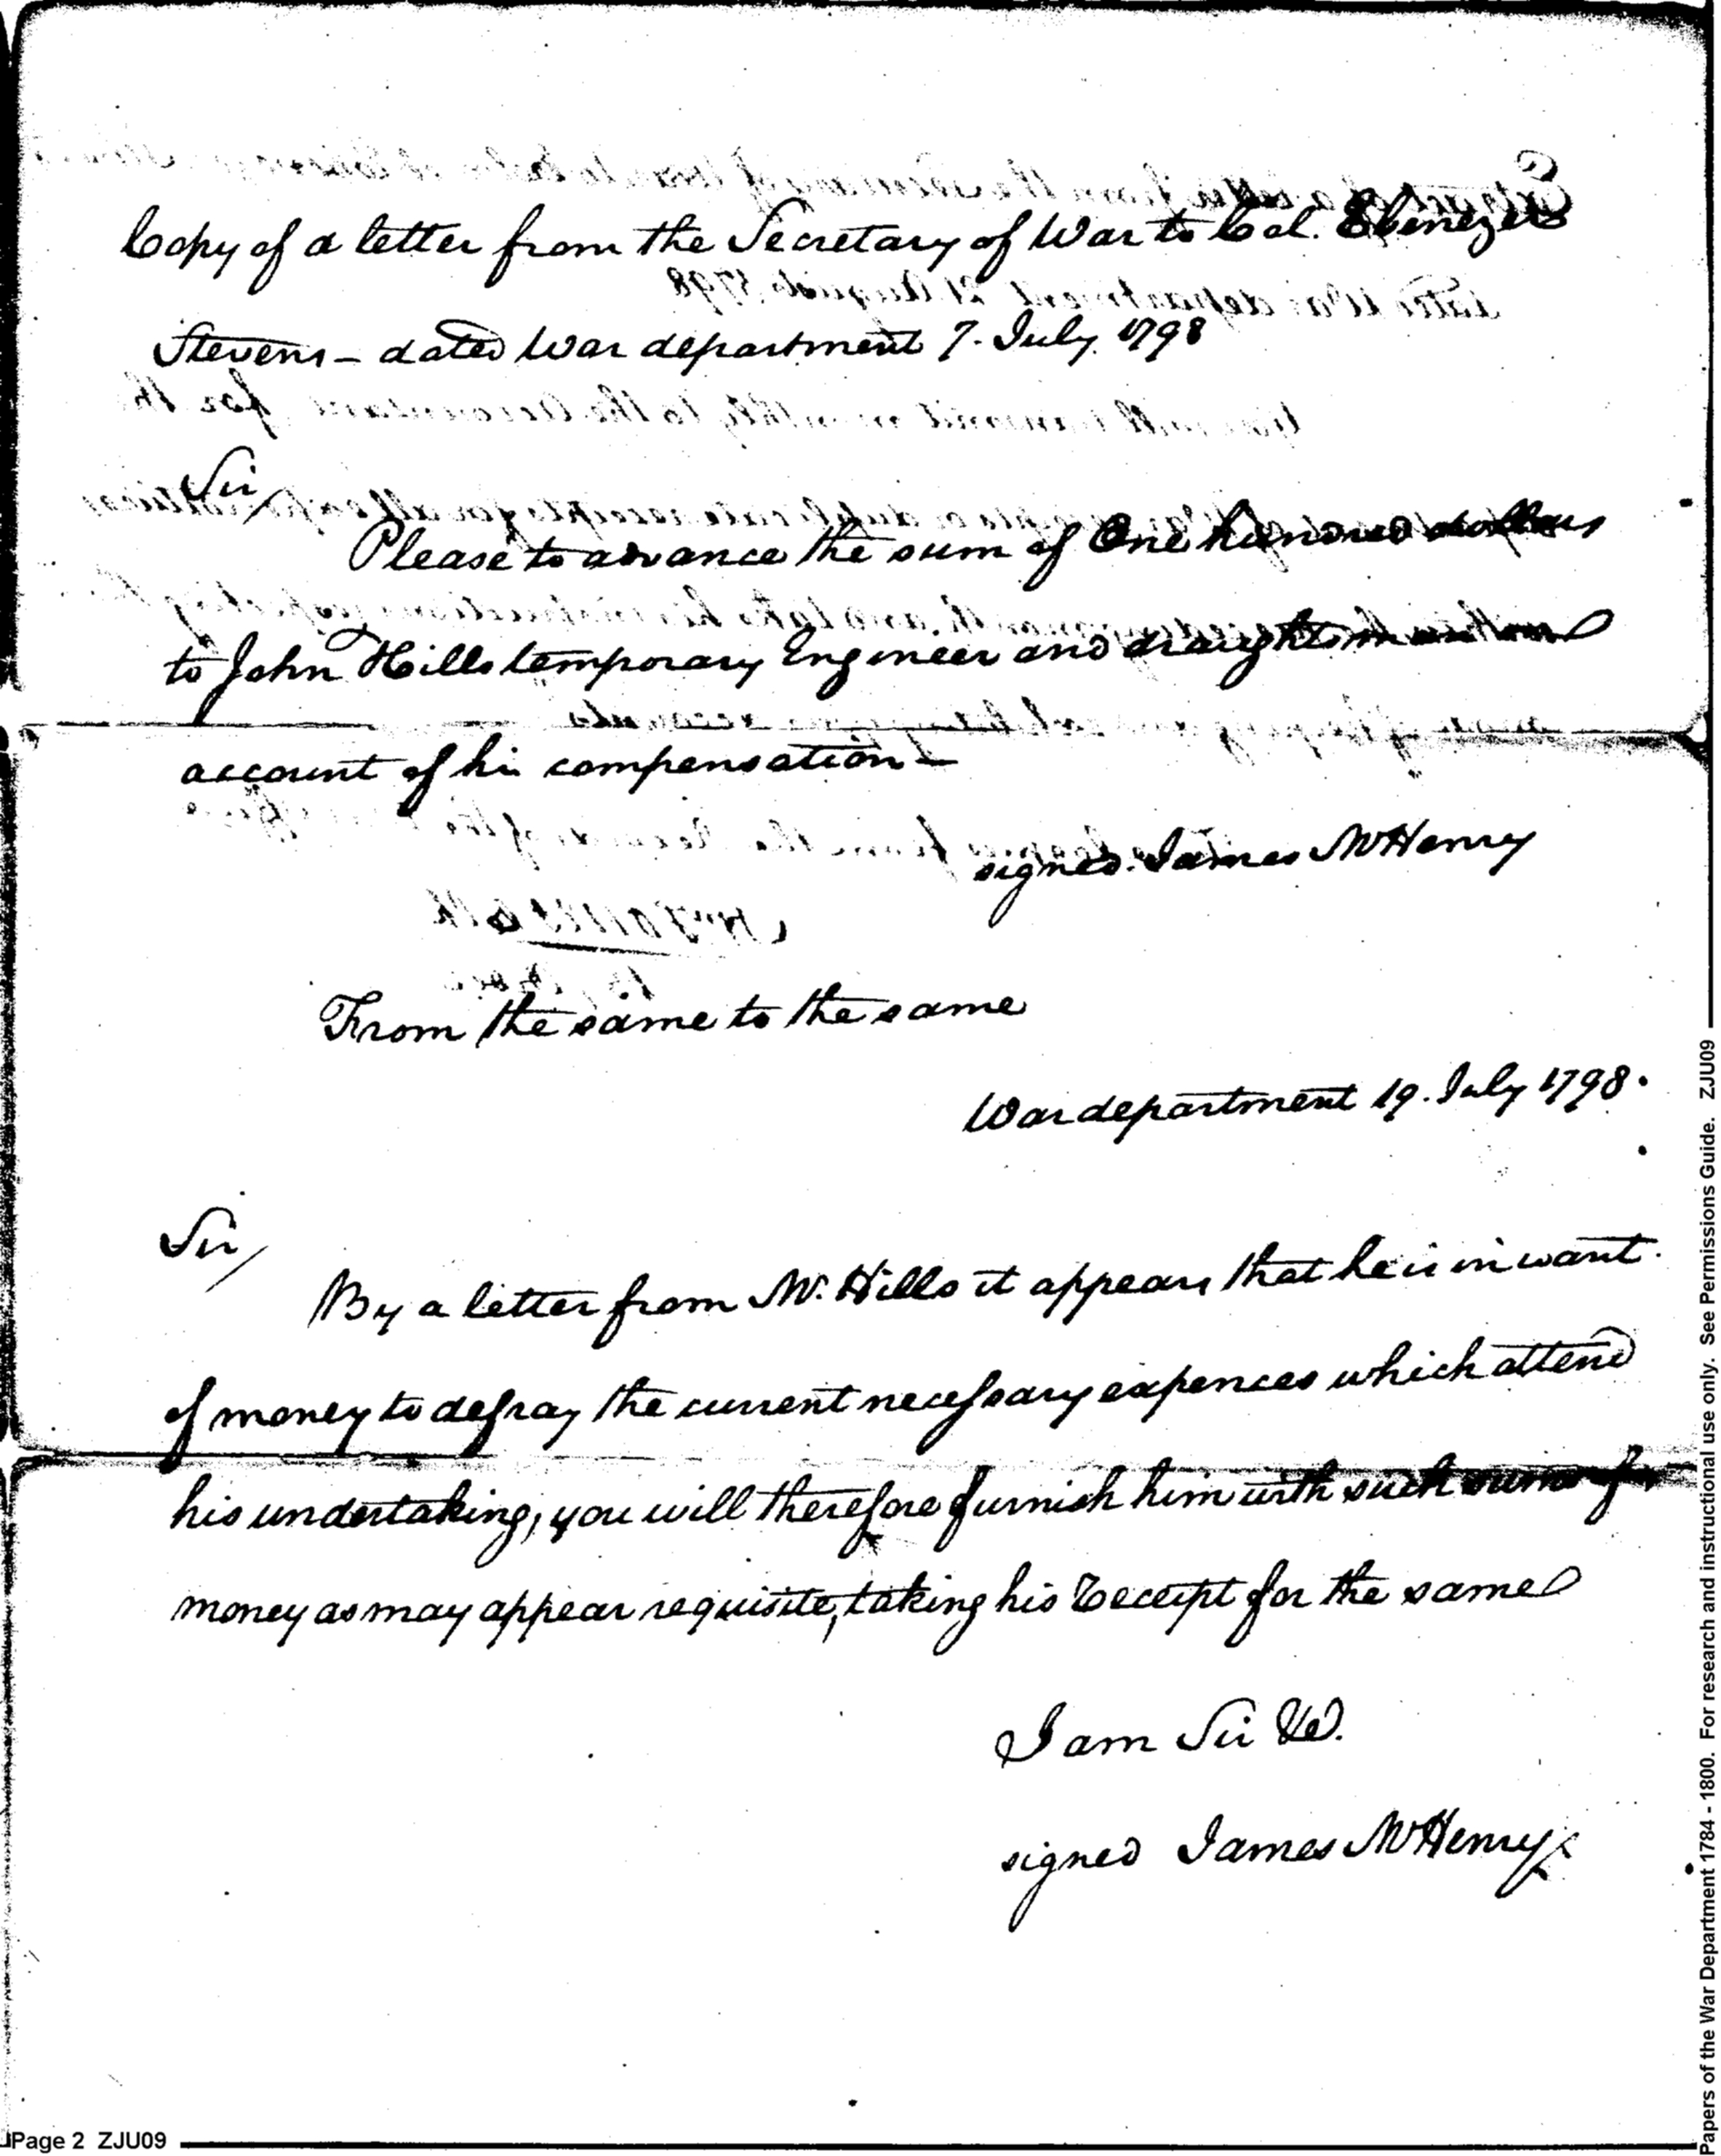 Copy of a letter from the Secretary of War to Col. Ebenezer
Stevens – dated War department 7. July. 1798
Sir/
Please to advance the sum of One hundred dollars
to John Hills temporary Engineer and draughtsman on
account of his compensation –
signed. James McHenry
From the same to the same
War department 19. July 1798.
Sir/
By a letter from Mr. Hills it appears that he is in want
of money to defray the current necessary expences which attend
his undertaking, you will therefore furnish him with such sums of
money as may appear requisite, taking his Receipt for the same
I am Sir &c.
signed James McHenry
Page 2 ZJU09
Papers of the War Department 1784 - 1800. For research and instructional use only. See Permissions Guide. ZJU09